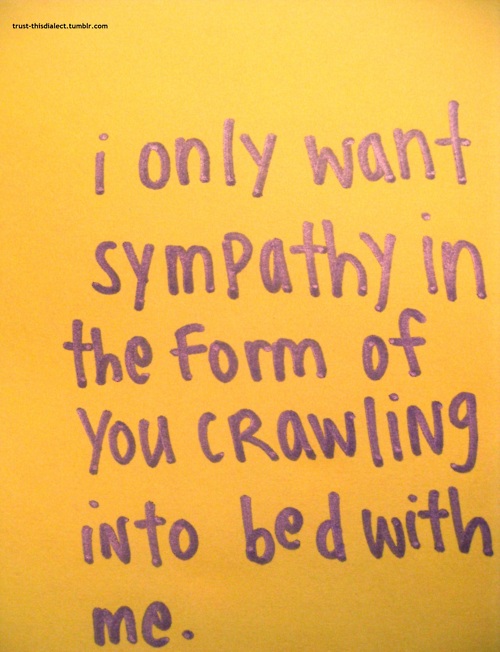 trust-thisdialect.tumblr.com
i only want
sympathy in
the form of
you crawling
into bed with
me.